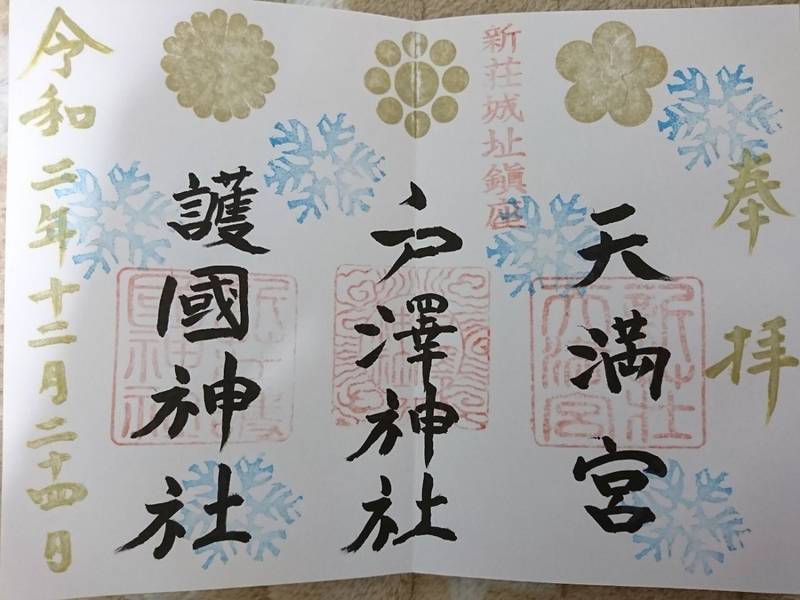 奉拝
天満宮
新荘城址鎮座
戸澤神社
護國神社
令和二年十二月二十四日